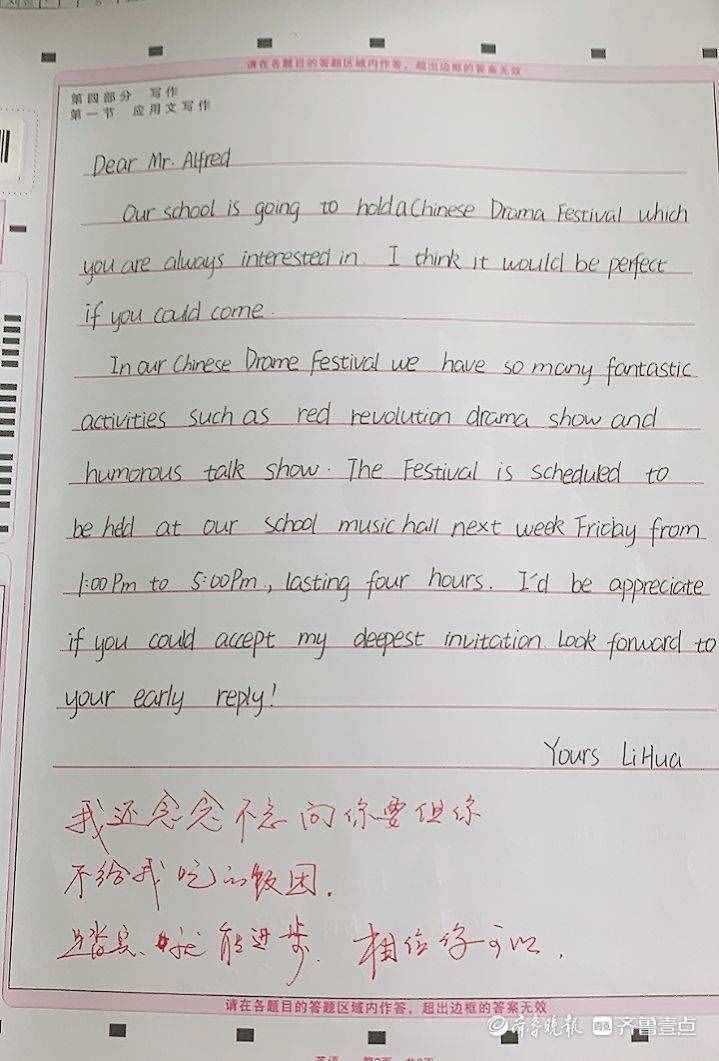 请在各题目的答题区域内作答，超出边框的答案无效
第四部分 写作
第一节 应用文写作
Dear Mr. Alfred
Our school is going to hold a Chinese Drama Festival which
you are always interested in. I think it would be perfect
if you could come.
In our Chinese Drame Festival we have so many fantastic
activities such as red revolution drama show and
humorous talk show. The Festival is scheduled to
be held at our school music hall next week Friday from
1:00Pm to 5:00Pm., lasting four hours. I'd be appreciate
if you could accept my deepest invitation. Look forward to
your early reply!
Yours LiHua
我还念念不忘向你要但你
不给我吃的饭团.
踏实、就能进步. 相信你可以.
请在各题目的答题区域内作答，超出边框的答案无效
齐鲁晚报 齐鲁壹点